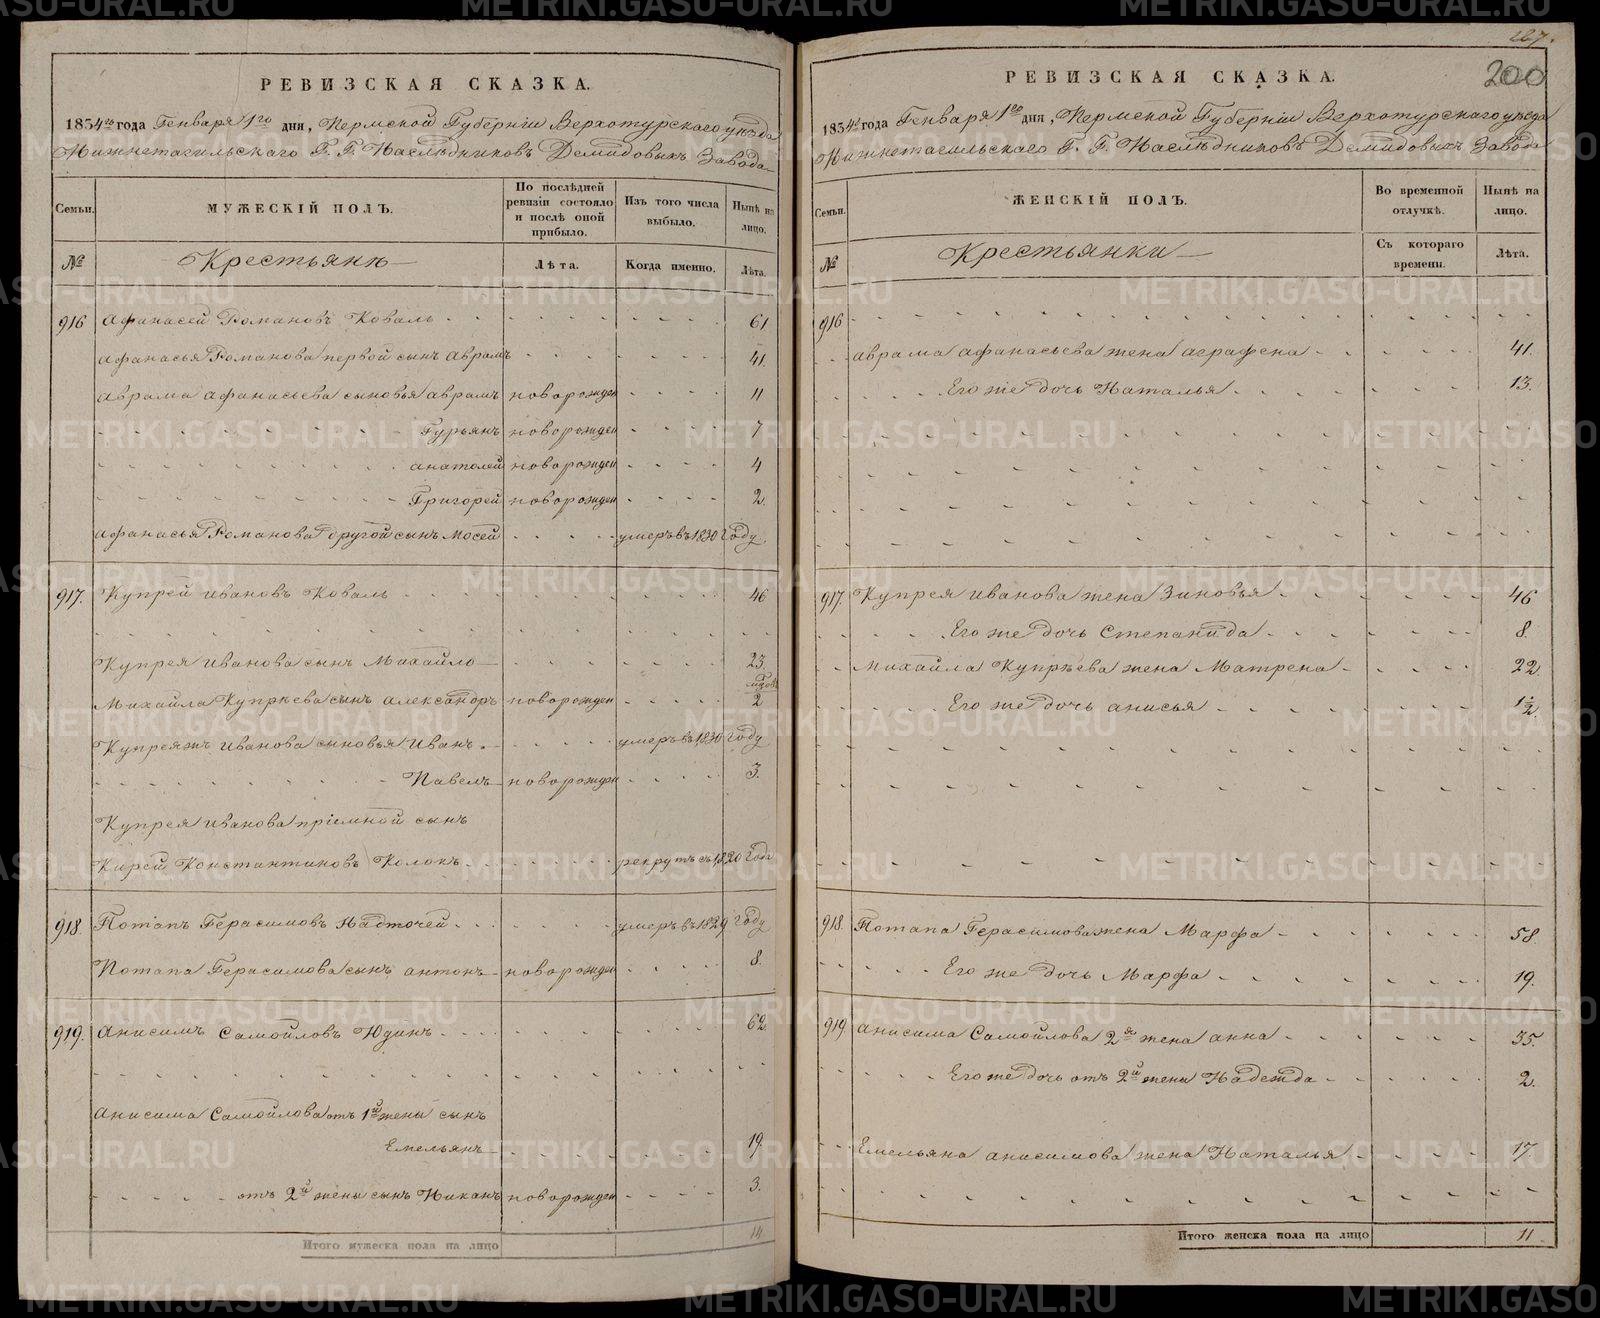 РЕВИЗСКАЯ СКАЗКА.
1834го года Генваря 1го дня, Пермской Губернiи Верхотурскаго уѣзда
Нижнетагильскаго Г. Г. Наслѣдниковъ Демидовыхъ Завода
Семьи.
МУЖЕСКIЙ ПОЛЪ.
По послѣдней ревизiи состояло и послѣ оной прибыло.
Изъ того числа выбыло.
Нынѣ на лицо.
№
Крестьянъ
Лѣта.
Когда именно.
Лѣта.
916 Афанасей Романовъ Коваль 61
Афанасья Романова первой сынъ Аврамъ 41.
Аврама Афанасьева сыновья Аврамъ новорожден 11
Гурьянъ новорожден 7
Анатолей новорожден 4
Григорей новорожден 2
Афанасья Романова другой сынъ Мосей умеръ въ 1830 году
917. Купрей Ивановъ Коваль 46
Купрея Иванова сынъ Михайло 23.
Михайла Купрѣева сынъ Александръ новорожден 2
Купреяжъ Иванова сыновья Иванъ умеръ въ 1830 году
Павелъ новорожден 3.
Купрея Иванова прiемной сынъ
Кирей Константиновъ Колокъ рекрутъ съ 1820 года
918. Потапъ Герасимовъ Надточей умеръ въ 1829 году
Потапа Герасимова сынъ Антонъ новорожден 8.
919. Анисимъ Самойловъ Юдинъ 62
Анисима Самойлова отъ 1й жены сынъ
Емельянъ 19.
отъ 2й жены сынъ Никанъ новорожден 3.
Итого мужеска пола на лицо 14
267.
200
РЕВИЗСКАЯ СКАЗКА.
1834го года Генваря 1го дня, Пермской Губернiи Верхотурскаго уѣзда
Нижнетагильскаго Г. Г. Наслѣдниковъ Демидовыхъ Завода
Семьи.
ЖЕНСКIЙ ПОЛЪ.
Во временной отлучкѣ.
Нынѣ на лицо.
№
Крестьянки
Съ котораго времени.
Лѣта.
916
Аврама Афанасьева жена Аграфена 41.
Его же дочь Наталья 13.
917. Купрея Иванова жена Зиновья 46
Его же дочь Степанида 8.
Михайла Купрѣева жена Матрена 22
Его же дочь Анисья 1½
918. Потапа Герасимова жена Марфа 58.
Его же дочь Марфа 19.
919 Анисима Самойлова 2я жена Анна 35.
Его же дочь отъ 2й жены Надежда 2.
Емельяна Анисимова жена Наталья 17.
Итого женска пола на лицо 11.
METRIKI.GASO-URAL.RU